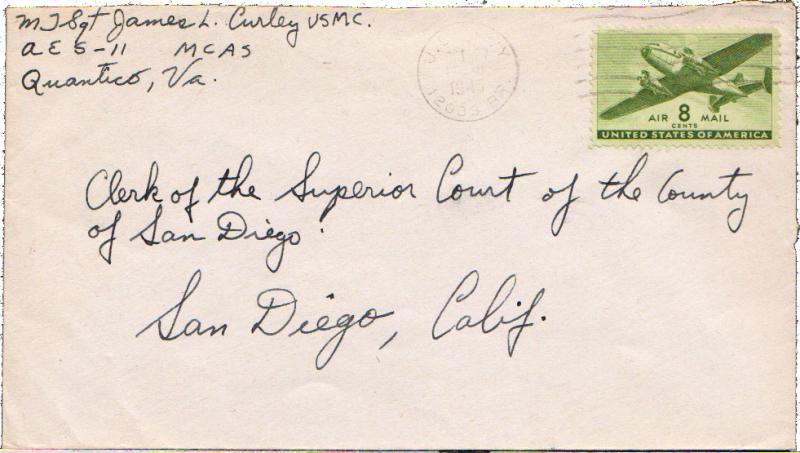 MTSgt James L. Curley USMC.
AES-11 MCAS
Quantico, Va.
1945
12655 BR.
AIR 8 MAIL
CENTS
UNITED STATES OF AMERICA
Clerk of the Superior Court of the County
of San Diego
San Diego, Calif.